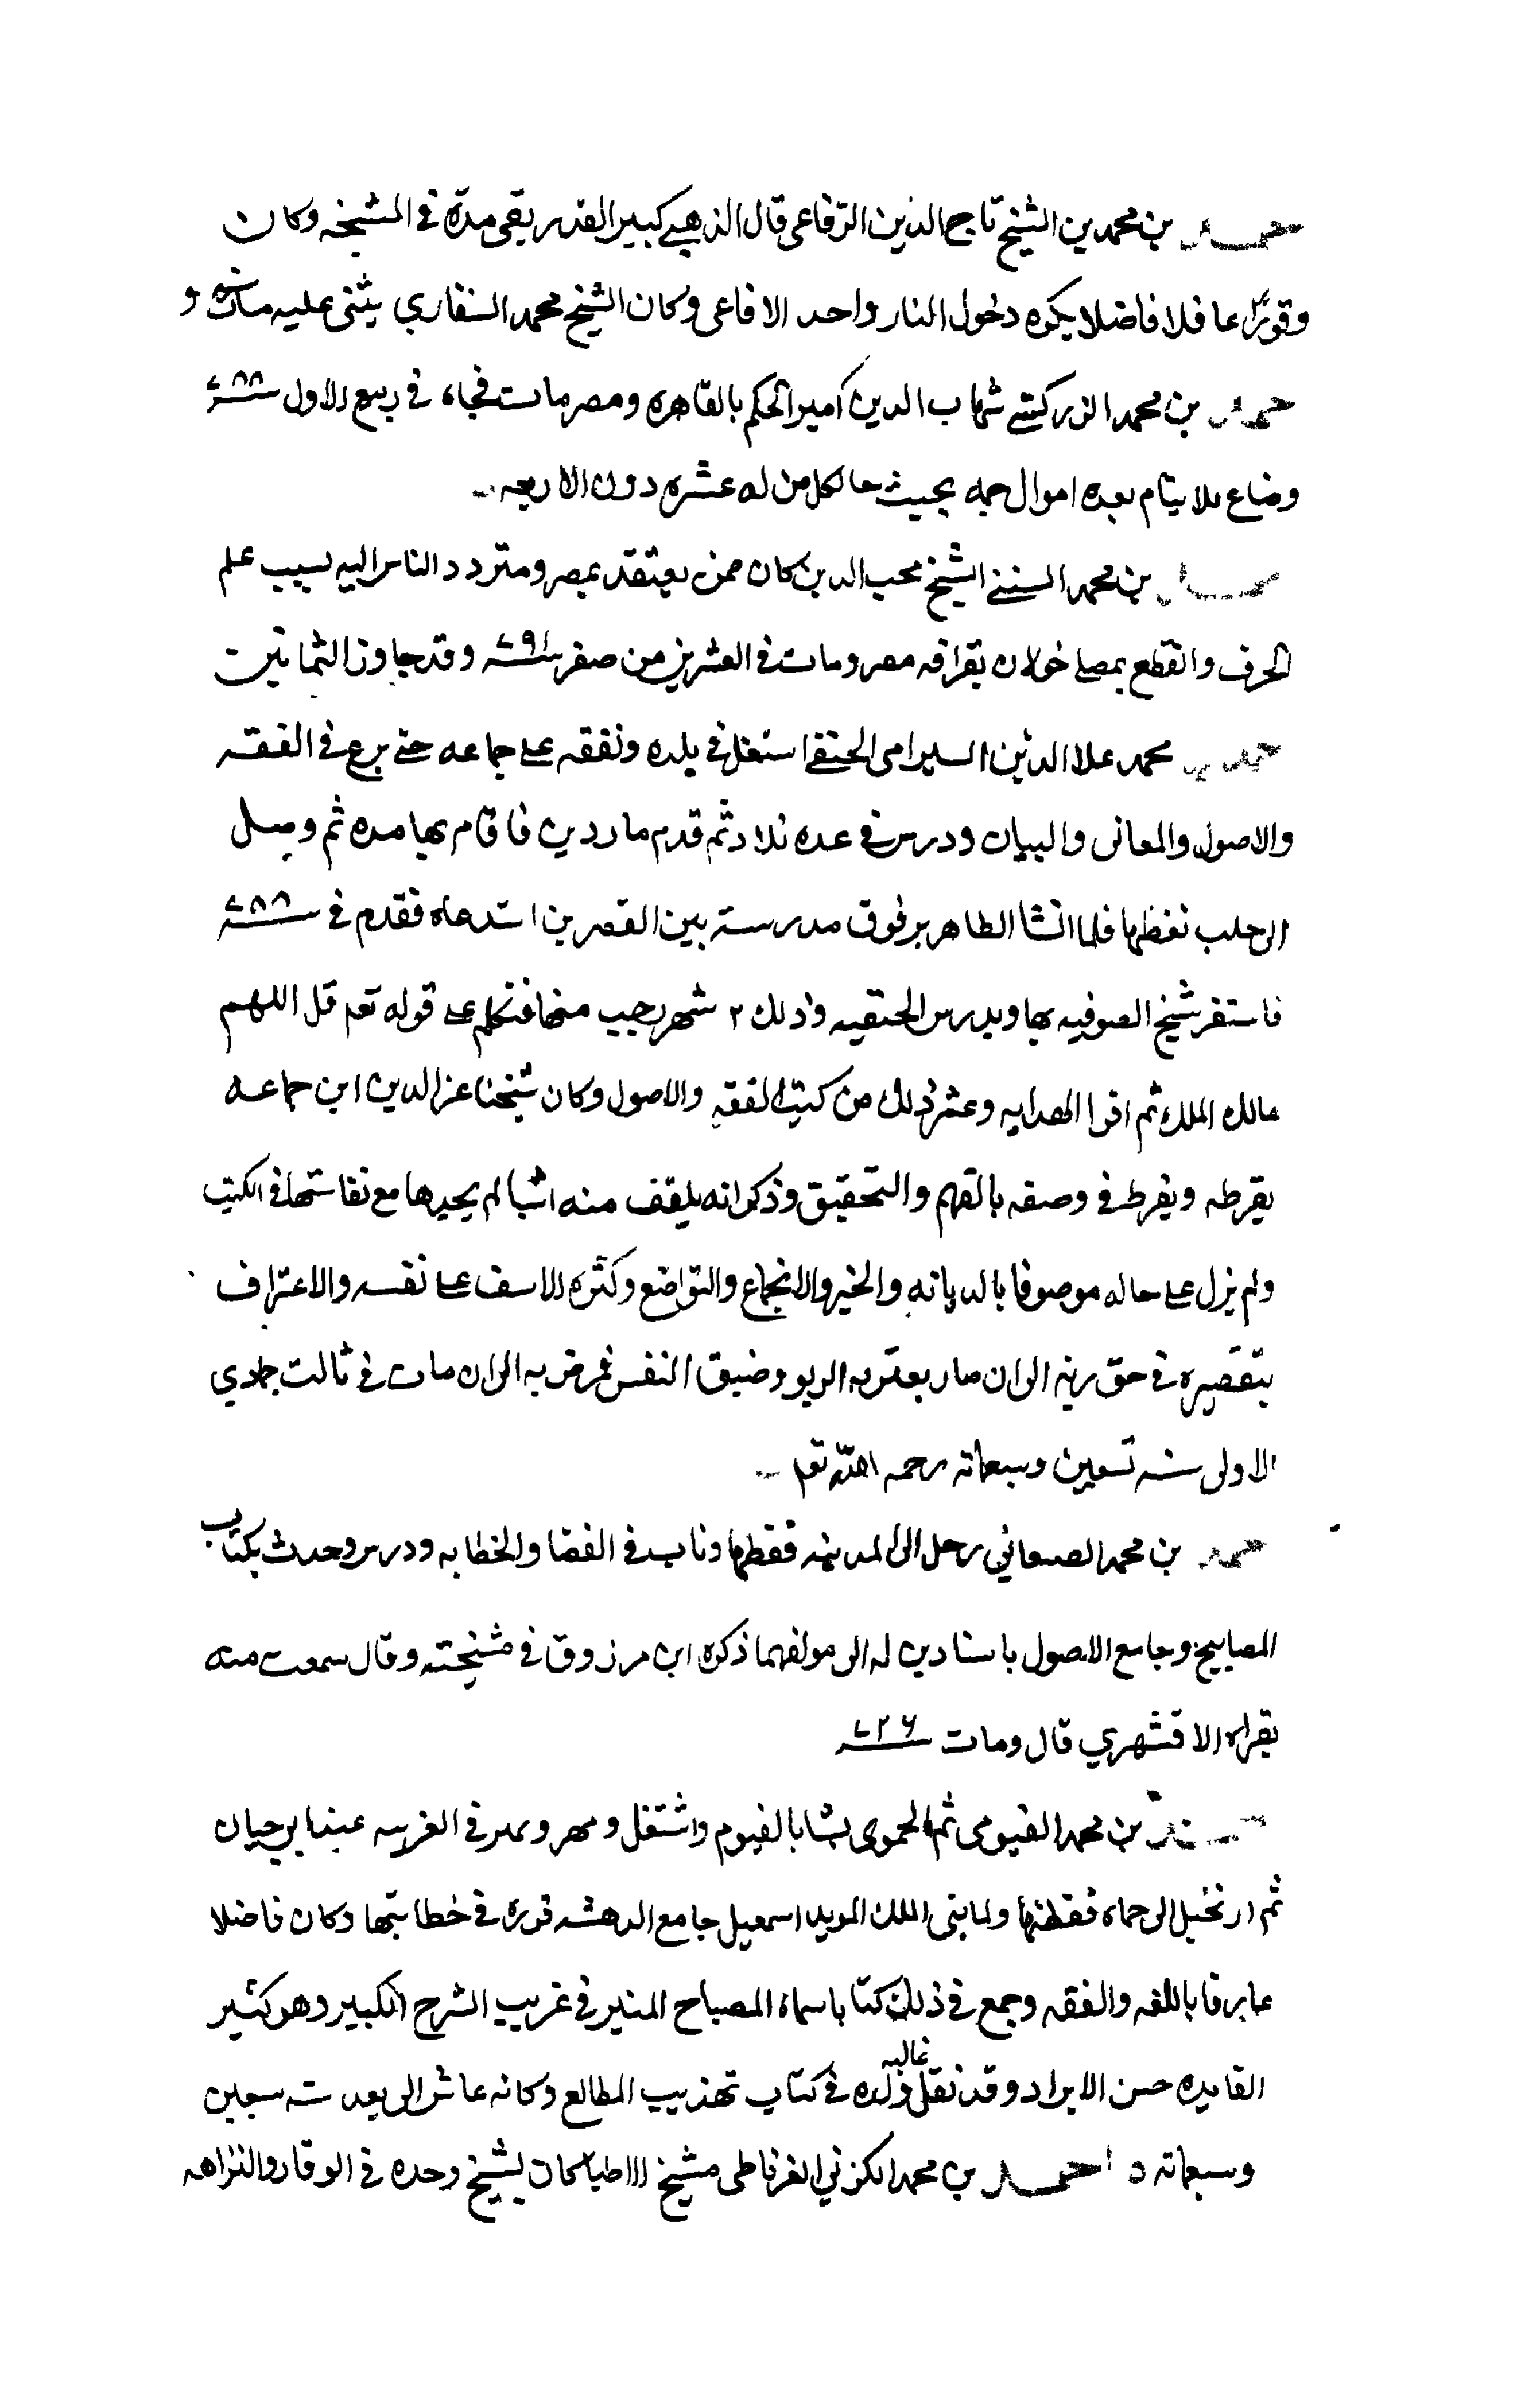 حمد بن محمد بن الشيخ تاج الدين الرفاعى قال الذهبي كبير القدر بقى مدة في المشيخه وكان
وقورا عاقلا فاضلا يكره دخول النار واحد الافاعى وكان الشيخ محمد السفاري يثنى عليه مات و
حمد بن محمد الزركشي شهاب الدين أمير الحكم بالقاهره ومصر مات فجاه في ربيع الاول سنة ٧٨٨
وضاع للايتام بعده اموال جمه بحيث حا لكل من له عشره دون الاربعه
بن محمد السنني الشيخ محب الدين كان ممن يعتقد بمصر ومتردد الناس اليه بسبب علم
الحرف والقطع بمصلى خولان بقرافه مصر ومات في العشرين من صفر سنة ٧٩١ وقد جاوز الثمانين
حمد بن محمد علا الدين السيرامى الحنفي استغل في بلده وتفقه على جماعه حتى برع في الفقه
والاصول والمعانى والبيان ودرس في عده بلاد ثم قدم ماردين فاقام بها مده ثم وصل
الى حلب فقطنها فلما انشا الظاهر برقوق مدرسته بين القصرين استدعاه فقدم في سنة ٧٨٨
فاستقر شيخ الصوفيه بها ومدرس الحنفيه وذلك ٢ شهر رجب منها فتكلم على قوله تعم قل اللهم
مالك الملك ثم اقرا الهدايه وغير ذلك من كتب الفقه والاصول وكان شيخنا عز الدين ابن جماعه
يقرطه ويفرط في وصفه بالفهم والتحقيق وذكر انه يلقف منه اشيا لم يجدها مع نفاستها في الكتب
ولم يزل على حاله موصوفا بالديانه والخير والانجماع والتواضع وكثره الاسف على نفسه والاعتراف
بتقصيره في حق ربه الى ان صار يعتريه الربو وضيق النفس فمرض به الى ان مات في ثالث جمادي
الاولى سنه تسعين وسبعمائة رحمه الله تعم
حمد بن محمد الصنعاني رحل الى المدينه فقطنها وناب في القضا والخطابه ودرس وحدث بكتاب
المصابيح وجامع الاصول باسنادين له الى مولفهما ذكره ابن مرزوق في مشيخته وقال سمعت منه
بقراه الاقشهري قال ومات سنة ٧٢٦
بن محمد الفيومى ثم الحموى نشا بالفيوم واشتغل ومهر وتميز في العربيه عند ابن حيان
ثم ارتحل الى حماه فقطنها ولما بنى الملك المويد اسمعيل جامع الدهشه قرره في خطابتها وكان فاضلا
عارفا باللغه والفقه وجمع في ذلك كتابا سماه المصباح المنير في غريب الشرح الكبير وهو كثير
الفايده حسن الايراد وقد نقل غالبه ولده في كتاب تهذيب المطالع وكانه عاش الى بعد سنه سبعين
وسبعمائة د احمد بن محمد الكزني الغرناطى شيخ الاطبا كان الشيخ وحده في الوقار والنزاهه